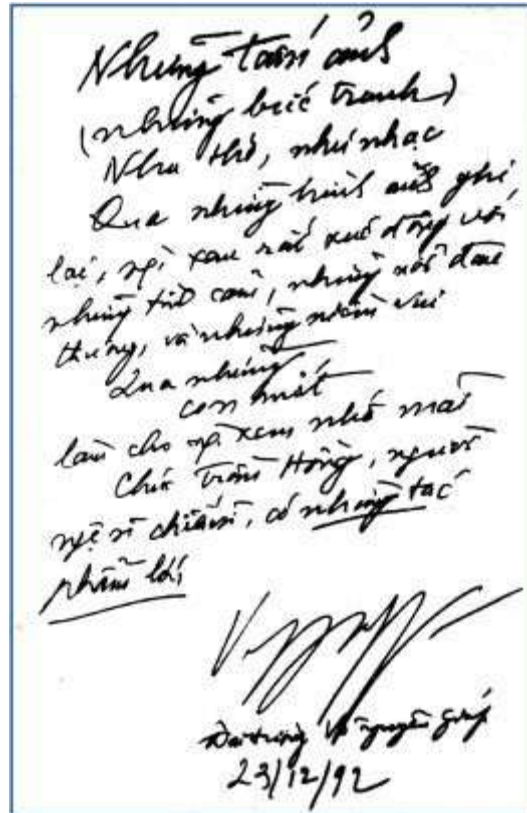 Những tấm ảnh
(những bức tranh)
Như thơ, như nhạc
Qua những hình ảnh ghi
lại, ng` xem rất xúc động với
những tình cảm, những nỗi đau
thương, và những niềm vui
Qua những
con mắt
làm cho ng` xem nhớ mãi
Chúc Trần Hồng, người
nghệ sĩ chiến sĩ, có những tác
phẩm lớn
Đại tướng Võ Nguyên Giáp
23/12/92